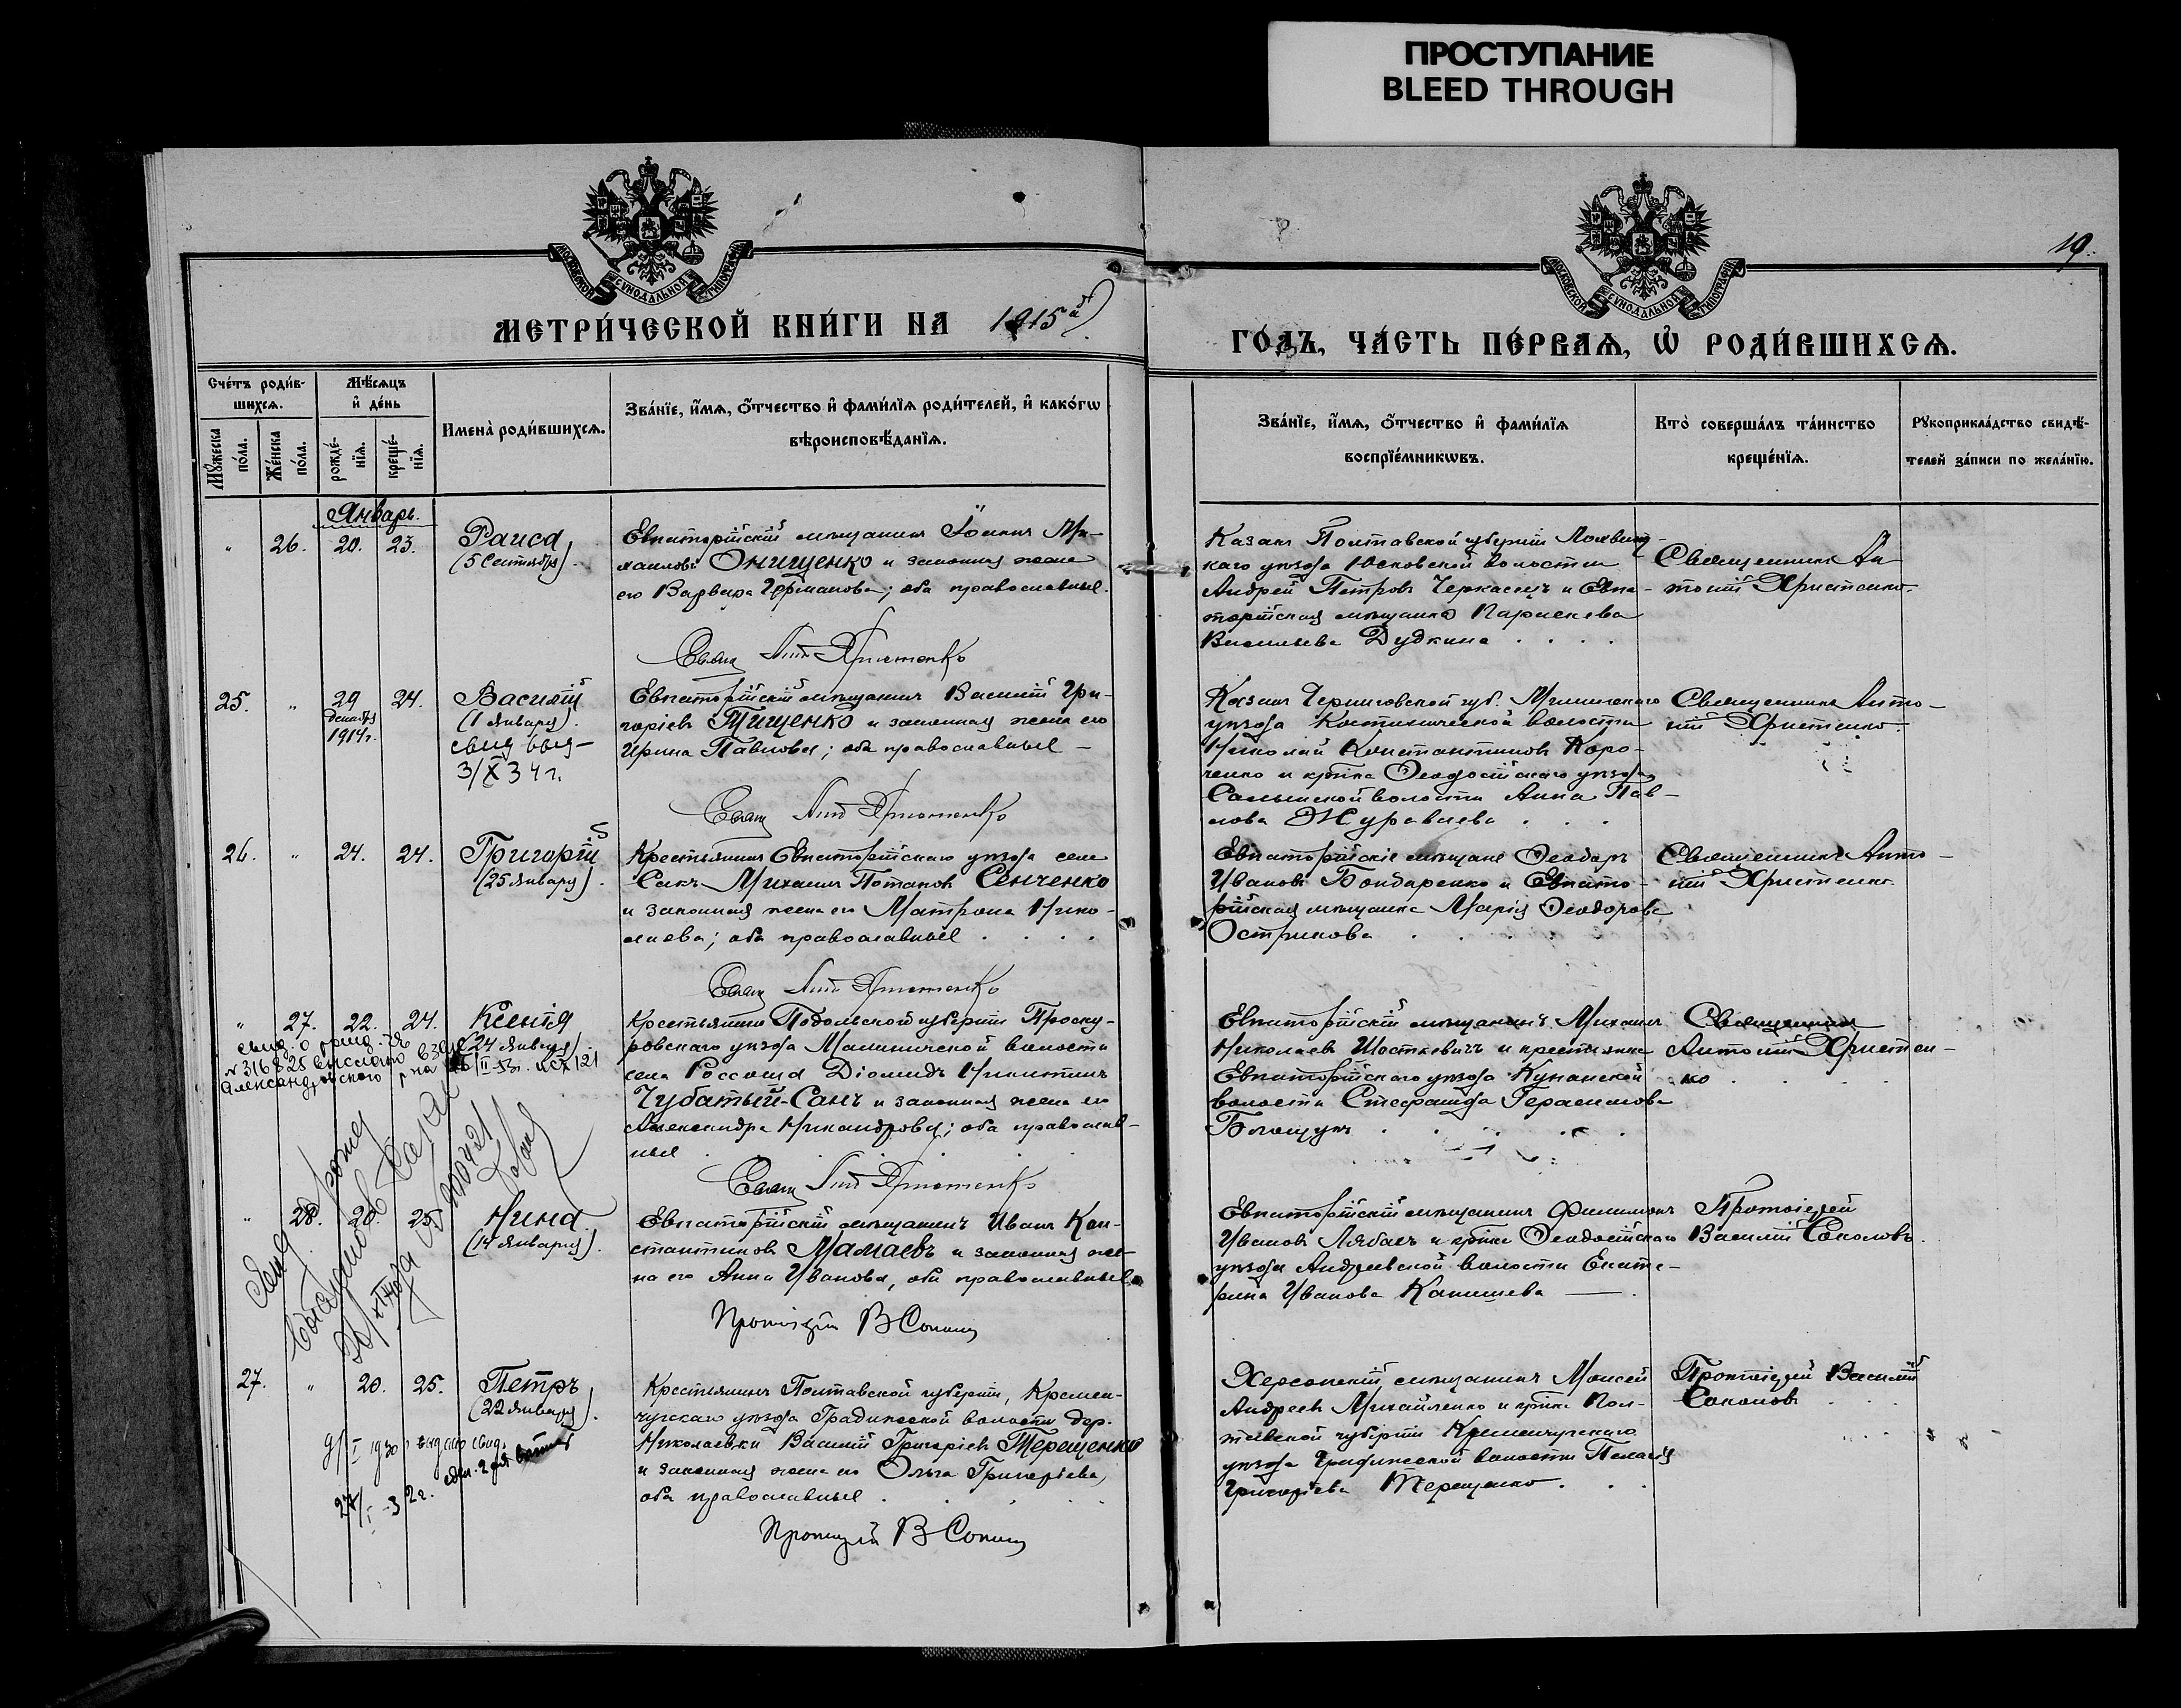 ПРОСТУПАНИЕ
BLEED THROUGH
19.
МОСКОВСКОЙ СѴНОДАЛЬНОЙ ТИПОГРАФІИ
МОСКОВСКОЙ СѴНОДАЛЬНОЙ ТИПОГРАФІИ
МЕТРИ́ЧЕСКОЙ КНИ́ГИ НА 1915й
ГО́ДЪ, ЧА́СТЬ ПЕ́РВАѦ, Ѡ҆ РОДИ́ВШИХСѦ.
Сче́тъ роди́в-
шихсѧ.
Мꙋ́жеска
по́ла.
Же́нска
по́ла.
Мѣ́сѧцъ
и҆ де́нь
рожде́-
нїѧ.
креще́-
нїѧ.
Имена̀ роди́вшихсѧ.
Зва́нїе, и҆́мѧ, ѻ҆́тчество и҆ фами́лїѧ роди́телей, и҆ како́гѡ
вѣроисповѣ́данїѧ.
Зва́нїе, и҆́мѧ, ѻ҆́тчество и҆ фами́лїѧ
воспрїе́мникѡвъ.
Кто̀ соверша́лъ та́инство
креще́нїѧ.
Рꙋкоприкла́дство свидѣ́-
телей за́писи по жела́нїю.
Январь.
" 26. 20. 23. Раиса
(5 Сентября).
Евпаторійскій мѣщанинъ Іоаннъ Ми-
хаиловъ Онищенко и законная жена
его Варвара Германова; оба православные.
Свящ Ант Христенко
Казакъ Полтавской губерніи Лохвиц-
каго уѣзда Юсковской волости
Андрей Петровъ Черкасецъ и Евпа-
торійская мѣщанка Параскева
Васильева Дудкина . . . .
Священникъ Ан-
тоній Христенко.
25. " 29 декабря 1914 г. 24. Василій
(1 Января).
свид выд-
3/X 34 г.
Евпаторійскій мѣщанинъ Василій Гри-
горіевъ Тищенко и законная жена его
Ирина Павлова; оба православные —
Свящ Ант Христенко
Казакъ Черниговской губ. Мглинскаго
уѣзда Костинической волости
Николай Константиновъ Коро-
ченко и крѣстка Ѳеодосійскаго уѣзда,
волости Анна Пав-
лова Журавлева . . .
Священникъ Анто-
ній Христенко.
26. " 24. 24. Григорій
(25 Января).
Крестьянинъ Евпаторійскаго уѣзда села
Сакъ Михаилъ Потаповъ Сенченко
и законная жена его Матрона Нико-
лаева; оба православные . . . .
Свящ Ант Христенко
Евпаторійскіе мѣщане Ѳеодоръ
Ивановъ Бондаренко и Евпато-
рійская мѣщанка Марія Ѳеодорова
Острикова . . . .
Священникъ Анто-
ній Христенко.
" 27. 22. 24. Ксенія
(24 Января).
свид. о рожд.
№ 316828 выслано в ЗАГС
Александровского р на
Крестьянинъ Подольской губерніи Проску-
ровскаго уѣзда Малиничской волости
села Россоша Діомидъ Никитинъ
Чубатый-Санъ и законная жена его
Александра Никандрова; оба православ-
ные
Свящ Ант Христенко
Евпаторійскій мѣщанинъ Михаилъ
Николаевъ Шосткевичъ и крестьянка
Евпаторійскаго уѣзда Кунанской
волости Стефанида Герасимова
Священникъ
Антоній Христен-
ко . . .
" 28. 20. 25. Нина.
(14 Января).
Евпаторійскій мѣщанинъ Иванъ Кон-
стантиновъ Мамаевъ и законная же-
на его Анна Иванова, оба православные
Протоіерей В Соколовъ
Евпаторійскій мѣщанинъ Филимонъ
Ивановъ Лябахъ и крѣстка Ѳеодосійскаго
уѣзда Андреевской волости Екате-
рина Иванова Канищева —
Протоіерей
Василій Соколовъ.
27. " 20. 25. Петръ
(22 Января).
9/I 1930 г выдано свид.
27/I-32 г.
Крестьянинъ Полтавской губерніи, Кремен-
чугскаго уѣзда Градижской волости дер.
Николаевки Василій Григоріевъ Терещенко
и законная жена его Ольга Григорьева,
оба православные . . . .
Протоіерей В Соколовъ
Херсонскій мѣщанинъ Моисей
Андреевъ Михайленко и крѣстка Пол-
тавской губерніи Кременчугскаго
уѣзда Градижской волости Пелагія
Григоріева Терещенко . . .
Протоіерей Василій
Соколовъ . . .